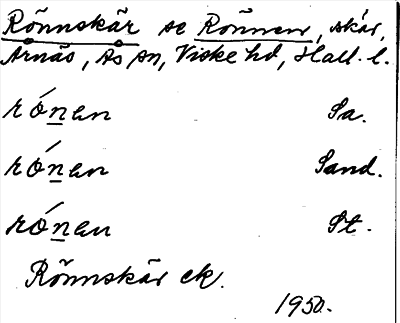 Rõnnskär se Rõnnen, skär,
Årnäs, Ås sn, Viske hd, Hall. l.
rónen Sa.
rónen Sand.
rónen St.
Rõnnskär ek.
1950.